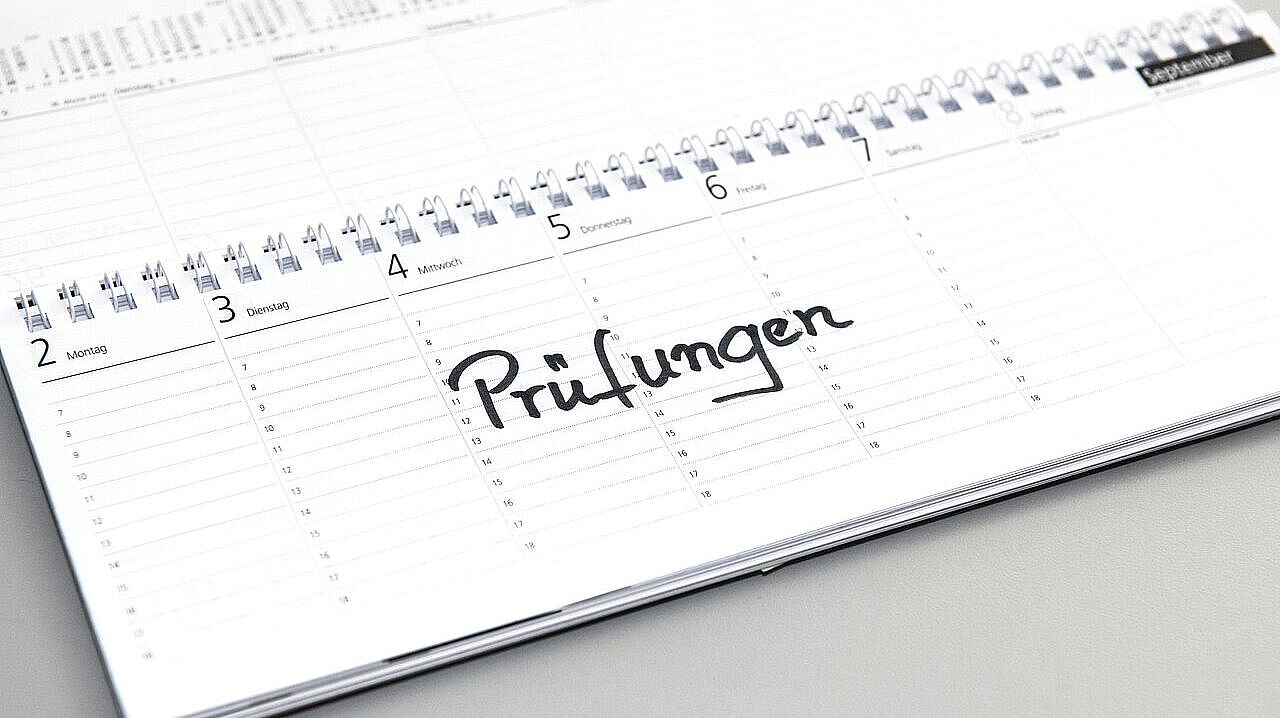 September
2 Montag
3 Dienstag
4 Mittwoch
5 Donnerstag
6 Freitag
7 Samstag
8 Sonntag
7
8
9
10
11
12
13
14
15
16
17
18
7
8
9
10
11
12
13
14
15
16
17
18
7
8
9
10
11
12
13
14
15
16
17
18
7
8
9
10
11
12
13
14
15
16
17
18
7
8
9
10
11
12
13
14
15
16
17
18
7
8
9
10
11
12
13
14
15
16
17
18
Prüfungen